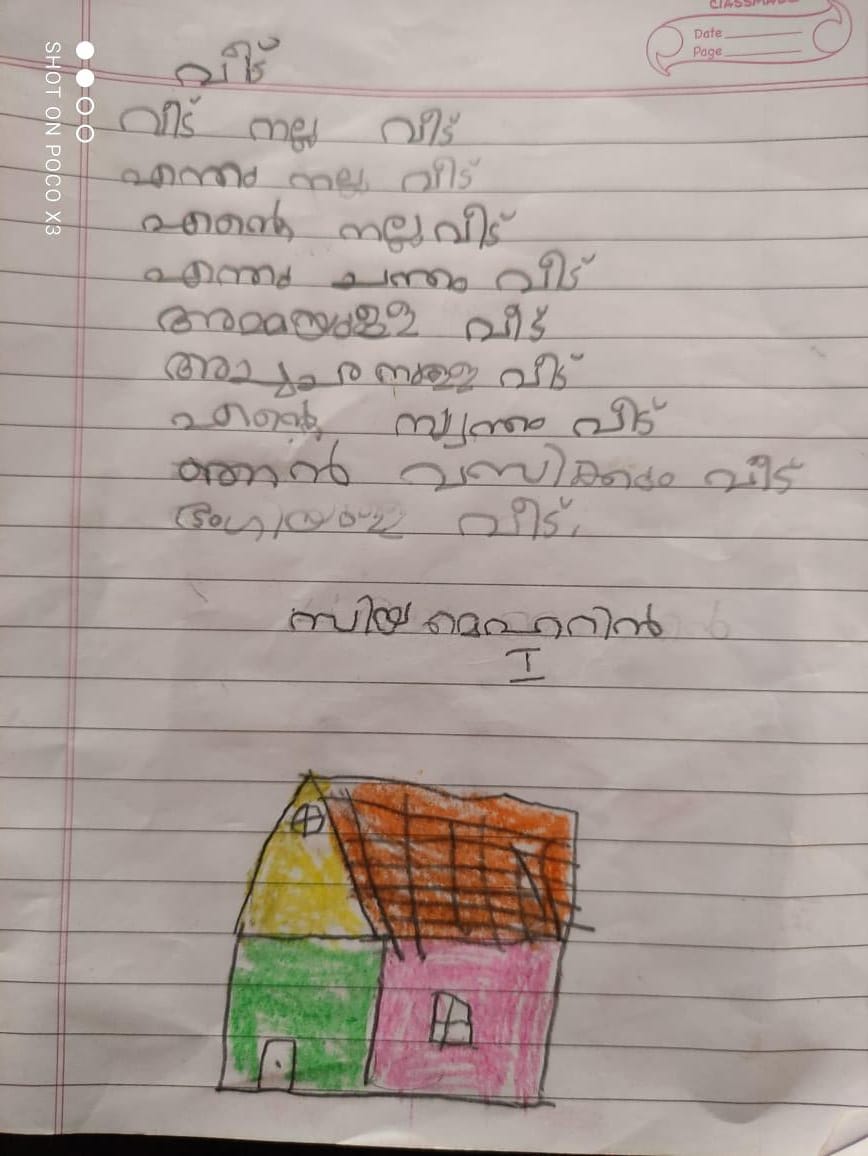 CLASSMATE
Date
Page
SHOT ON POCO X3
വീട്
വീട് നല്ല വീട്
എന്തു നല്ല വീട്
എന്റെ നല്ല വീട്
എന്തു ചന്തം വീട്
അമ്മയുള്ള വീട്
അച്ഛനുള്ള വീട്
എന്റെ സ്വന്തം വീട്
ഞാൻ വസിക്കും വീട്
ഭംഗിയുള്ള വീട്.
സിയ മെഹറിൻ
I